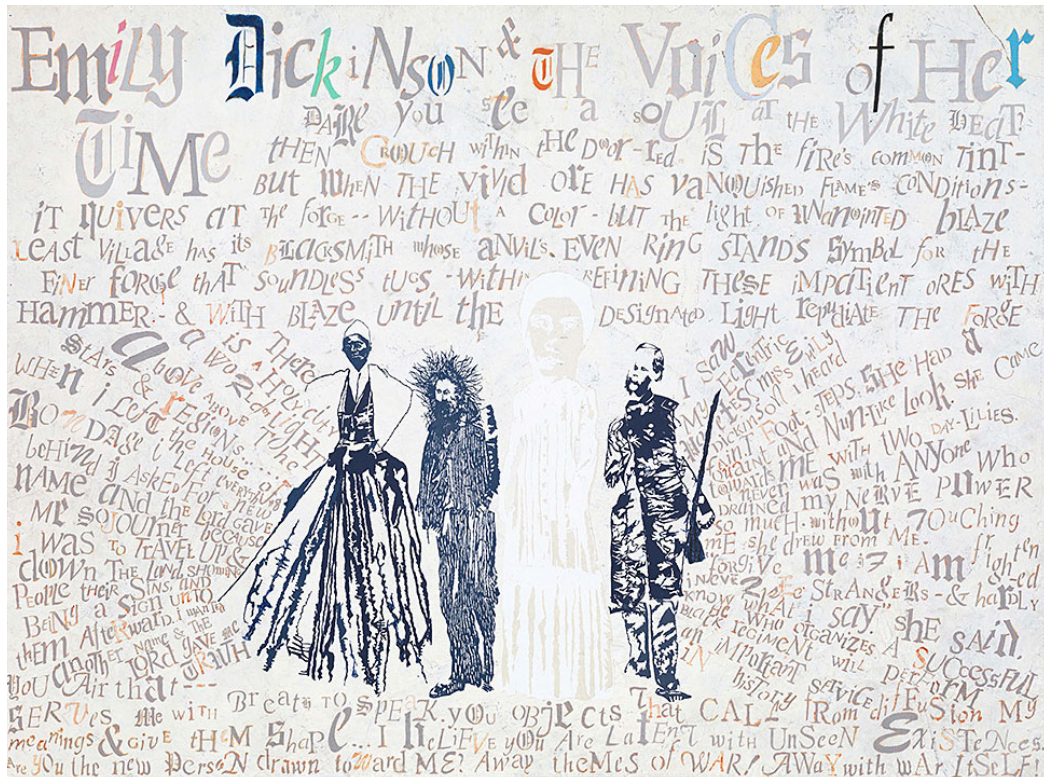 Emily Dickinson & THE Voices of Her
TiMe
DARE you see a soUL aT THE White HEAT?
tHEN CROUCH within tHE Door-red is The fiRe's common Tint-
BuT WHeN THE vivid ore HAS vaNQUisHeD FLAME'S CoNDitions-
iT quivers aT The forge--WiTHOUt A CoLoR-BUT THE light oF UNanointed BLAZe
Least ViLLAgE has its BLACKSMiTH whose ANViL's EVEN RiNg STANDS SymboL foR tHE
FiNer forge thAT souNDLeSS tugs-WitHiN REfiNiNG THeSE iMpATieNT oRES wiTH
HaMMER-& WiTH BLAZe uNtiL the DESigNated LigHT repuDiate THe FoRGe
iS THeRe
a HoLy ciTy
a WoRLD of LigHT
aBove ABOVE THe
StaRs & aBove
ReGioNS....
WHeN i LefT the House of
BoNDAGe i Left everytHiNg
beHiND I ASkED FoR a NEW
NAME aND the LoRD gAVE
ME SojOURNeR because
i WAS To TRAVEL UP &
DOWN THE LAND SHOWiNG
PeopLE THeiR SiNS, AND
BeiNg a SigN uNTO
tHEM AfteRWARD. I WANTED
aNotHeR NAMe & THe
LoRD gAVe Me
TRUTH
I SAW
MY ecceNtRiC
POETESS Miss EMiLY
DickiNSoN. i heard
faiNT FooT-STEPS. SHe HAD a
quaiNT aND NuN-Like Look. SHe CaMe
towards ME WiTH tWO DAY-LiLies.
i NeveR waS WitH ANYoNe WHo
DRaiNeD my NeRVE PoWER
so mucH. WitHoUt TOuCHiNg
mE she DrEW FROM ME.
foRgiVe me if i AM fRigHteNeD
i NEVeR see StRANgERS-& haRDLY
KNOW wHAt i say." sHE SAiD.
WHO ORgANiZES A SUCCeSSFUL
BLACK RegiMENT WiLL PERFoRM
AN iMPoRTANT SeRViCe
iN HiSToRY
YOU AiR that---
SERVes Me WiTH BREaTH TO SPEAK. yOu OBJEcts that CALL FRom diffUSioN My
meaNiNgs & GiVE tHeM SHaPe...I BeLiEVe yOU ARe LaTeNT witH UNSeeN ExiSTeNces.
ARe yOU the NeW PeRSoN DRAwN toWaRD ME? AWay tHeMeS oF WAR! AWAY witH wAR ItSeLF!